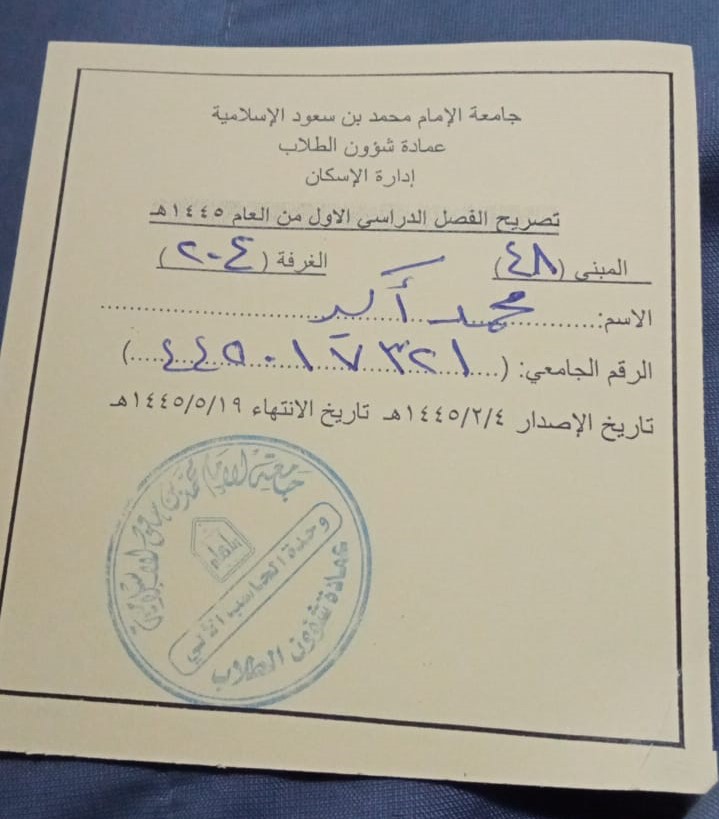 جامعة الإمام محمد بن سعود الإسلامية
عمادة شؤون الطلاب
إدارة الإسكان
تصريح الفصل الدراسي الاول من العام ١٤٤٥هـ
المبنى (٤٨) الغرفة (٢٠٤)
الاسم: محمد أكبر
الرقم الجامعي: (٤٤٥٠١٧٣٢١)
تاريخ الإصدار ١٤٤٥/٢/٤هـ تاريخ الانتهاء ١٤٤٥/٥/١٩هـ
جامعة الإمام محمد بن سعود الإسلامية
وحدة الحاسب الآلي
عمادة شؤون الطلاب